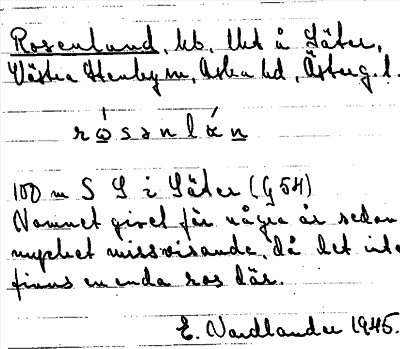 Rosenlund, hb, lht å Säter,
Västra Stenby sn, Aska hd, Österg. l.
rωsənlαn
100 m S S i Säter (G 54)
Namnet givet för några år sedan
mycket missvisande, då det inte
finns en enda ros där.
E. Nordlander 1945.